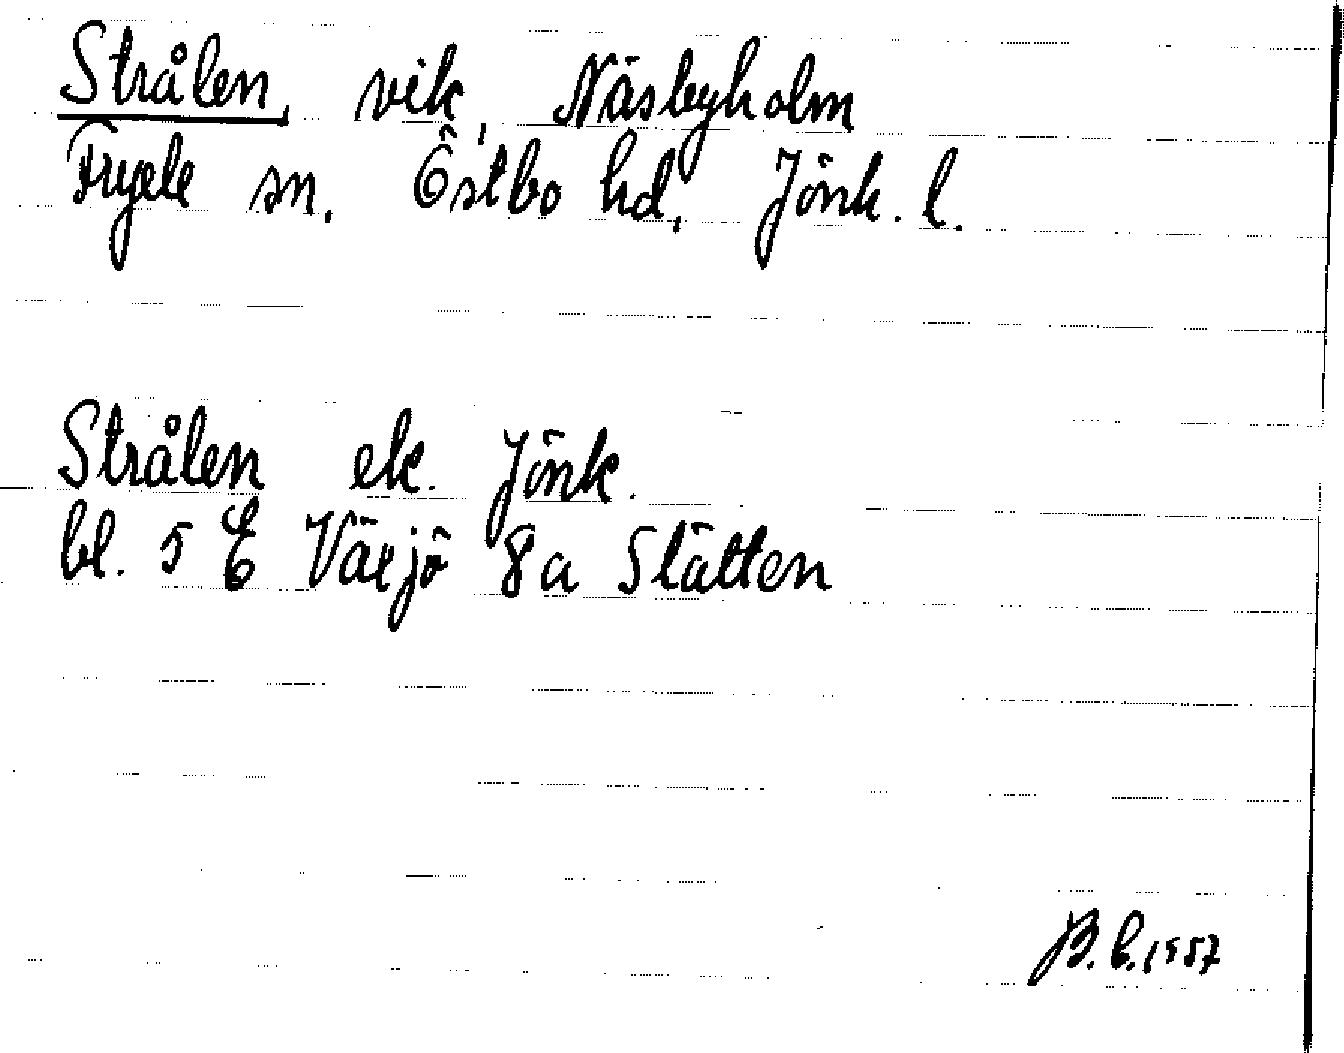 Strålen, vik, Näsbyholm
Fryele sn. Östbo hd, Jönk. l.
Strålen ek. Jönk.
bl. 5 E Växjö 8a Slätten
B. E. 1957